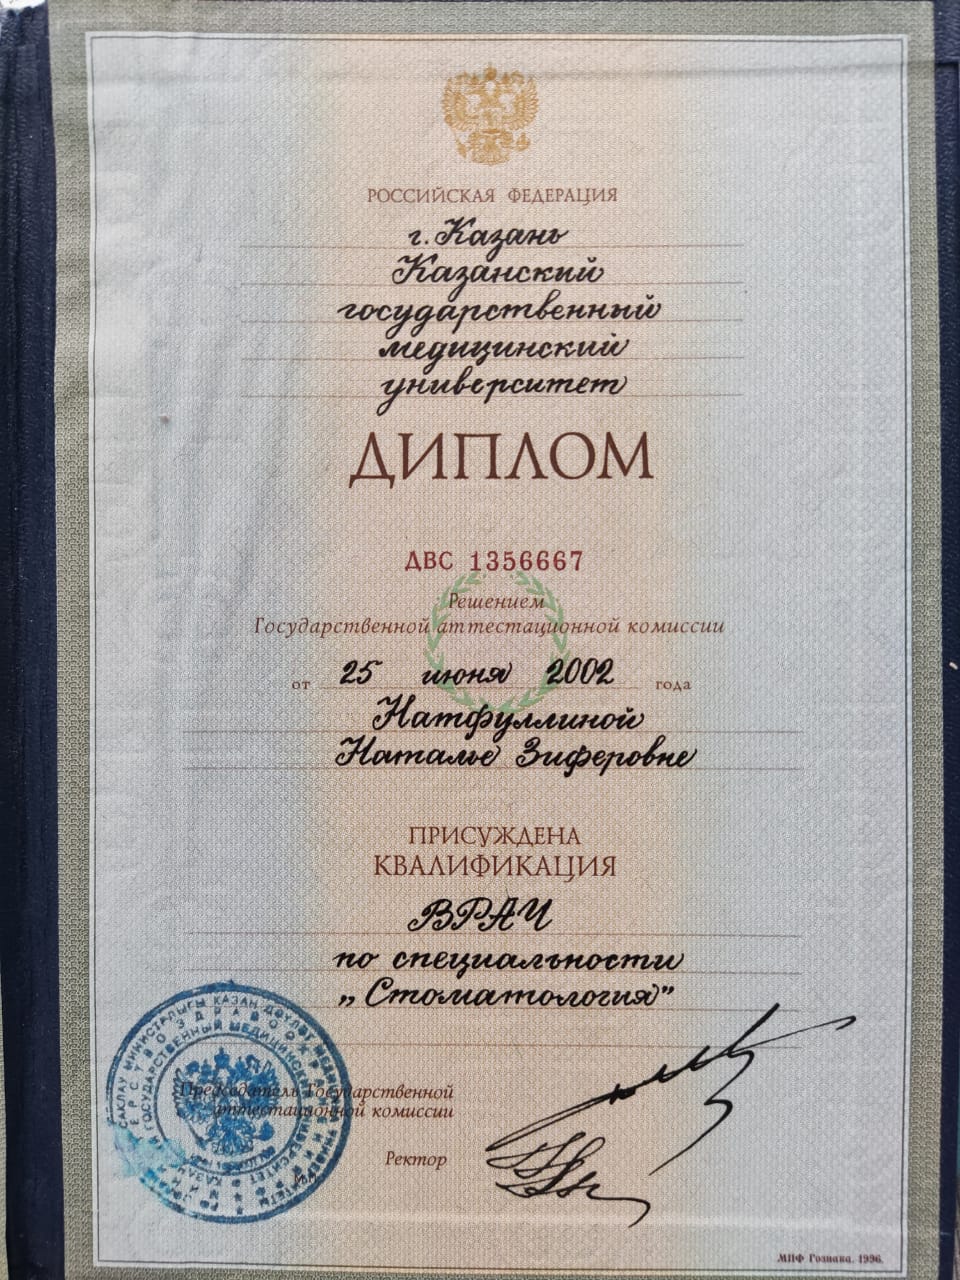 РОССИЙСКАЯ ФЕДЕРАЦИЯ
г. Казань
Казанский
государственный
медицинский
университет
ДИПЛОМ
ДВС 1356667
Решением
Государственной аттестационной комиссии
от 25 июня 2002 года
Натфуллиной
Наталье Зиферовне
ПРИСУЖДЕНА
КВАЛИФИКАЦИЯ
ВРАЧ
по специальности
„Стоматология”
Председатель Государственной
аттестационной комиссии
Ректор
МПФ Гознака. 1996.